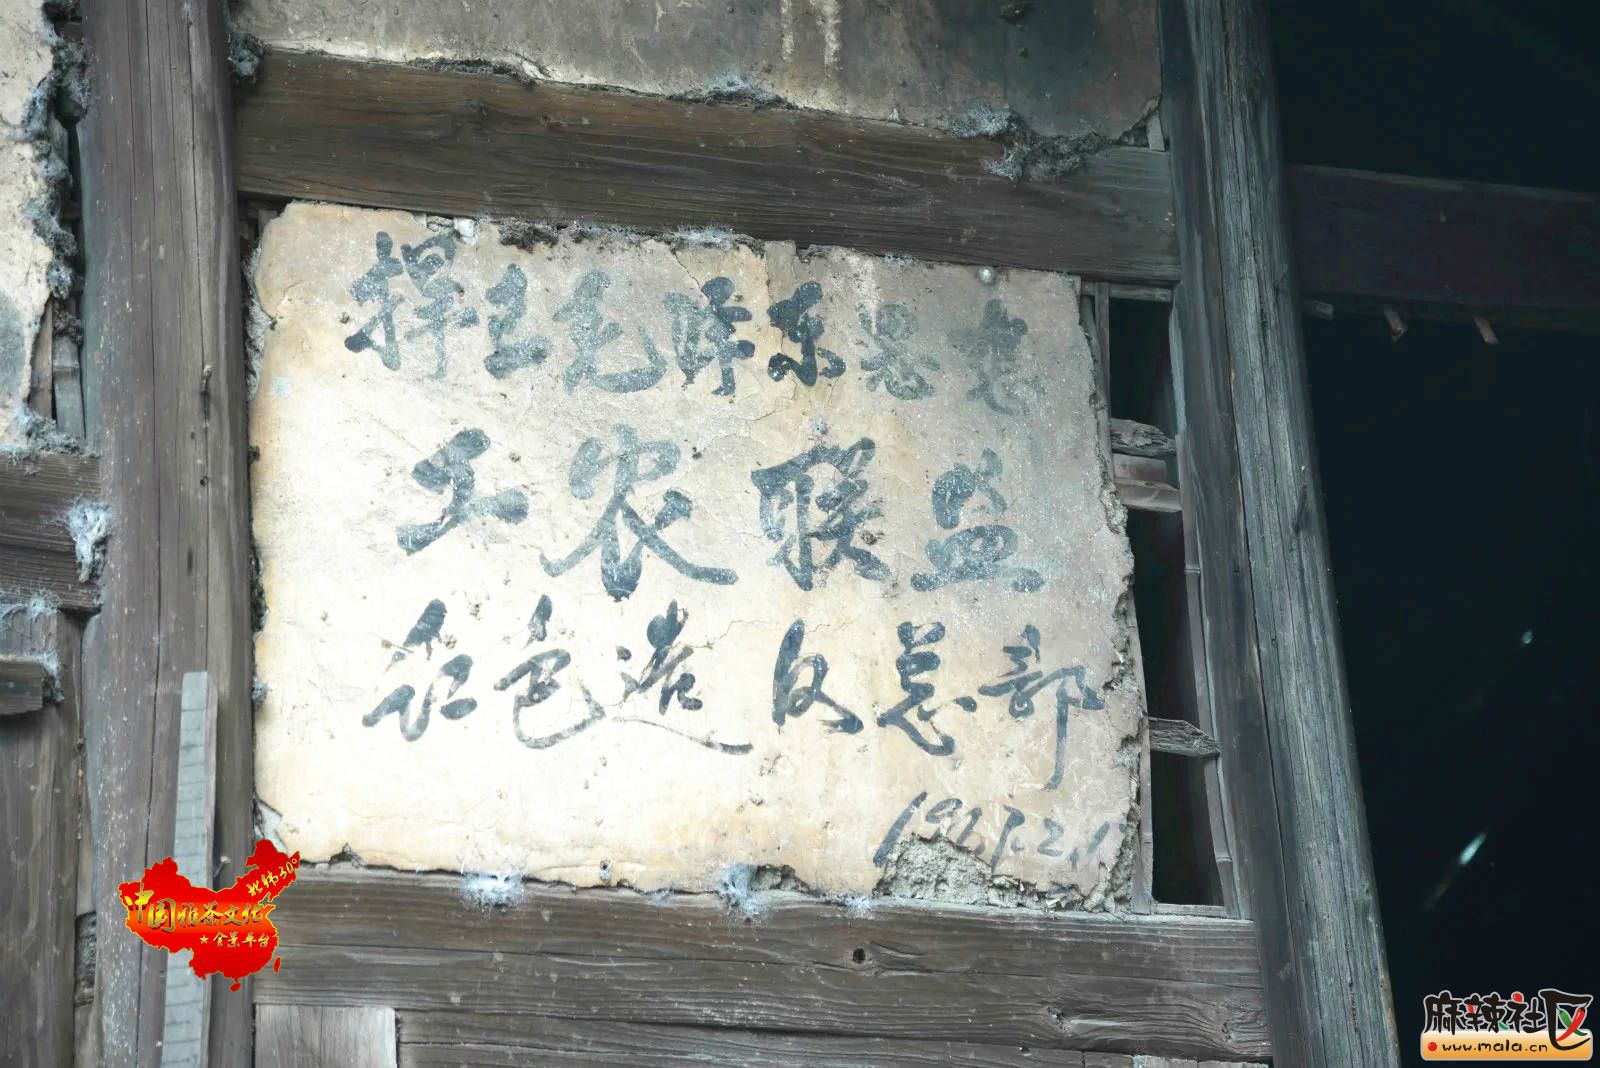 捍卫毛泽东思想
工农联盟
红色造反总部
1967.2.1
北纬30°
中国雅茶文化
★全景平台
麻辣社区
www.mala.cn